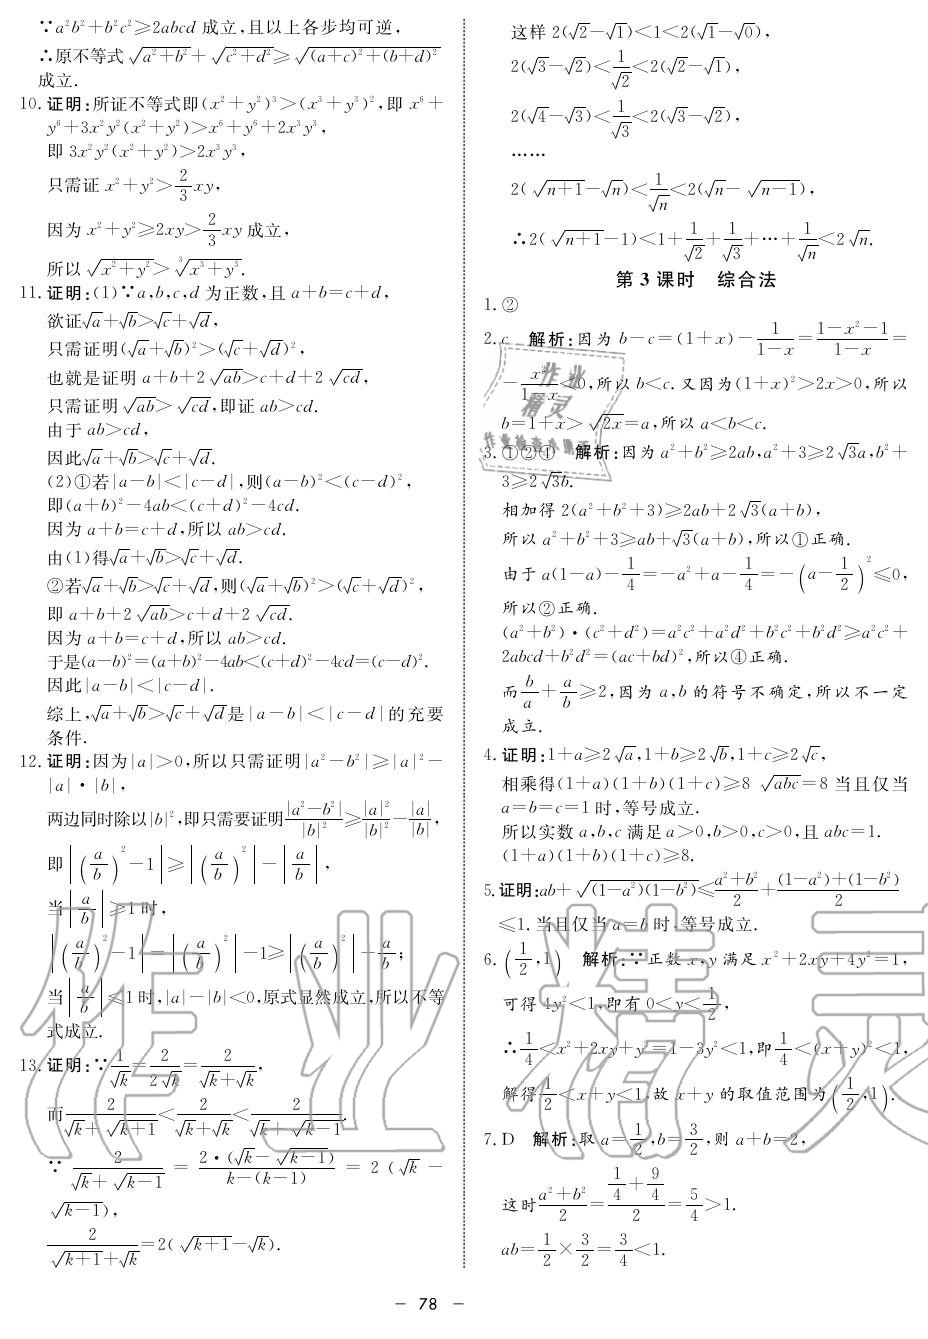 ∵a²b²+b²c²≥2abcd 成立,且以上各步均可逆,
∴原不等式 √(a²+b²) + √(c²+d²) ≥ √((a+c)²+(b+d)²)
成立.
10. 证明:所证不等式即(x²+y²)³>(x³+y³)²,即 x⁶+
y⁶+3x²y²(x²+y²)>x⁶+y⁶+2x³y³,
即 3x²y²(x²+y²)>2x³y³,
只需证 x²+y²>2/3xy,
因为 x²+y²≥2xy>2/3xy 成立,
所以 √(x²+y²) > ³√(x³+y³).
11. 证明:(1)∵a,b,c,d 为正数,且 a+b=c+d,
欲证√a+√b>√c+√d,
只需证明(√a+√b)²>(√c+√d)²,
也就是证明 a+b+2√(ab)>c+d+2√(cd),
只需证明 √(ab)>√(cd),即证 ab>cd.
由于 ab>cd,
因此√a+√b>√c+√d.
(2)①若|a-b|<|c-d|,则(a-b)²<(c-d)²,
即(a+b)²-4ab<(c+d)²-4cd.
因为 a+b=c+d,所以 ab>cd.
由(1)得√a+√b>√c+√d.
②若√a+√b>√c+√d,则(√a+√b)²>(√c+√d)²,
即 a+b+2√(ab)>c+d+2√(cd).
因为 a+b=c+d,所以 ab>cd.
于是(a-b)²=(a+b)²-4ab<(c+d)²-4cd=(c-d)².
因此|a-b|<|c-d|.
综上,√a+√b>√c+√d是|a-b|<|c-d|的充要
条件.
12. 证明:因为|a|>0,所以只需证明|a²-b²|≥|a|²-
|a|·|b|,
两边同时除以|b|²,即只需要证明|a²-b²|/|b|²≥|a|²/|b|²-|a|/|b|,
即|(a/b)²-1|≥|(a/b)²|-|a/b|,
当|a/b|≥1时,
|(a/b)²-1|=|(a/b)²|-1≥|(a/b)²|-|a/b|;
当|a/b|≤1时,|a|-|b|<0,原式显然成立,所以不等
式成立.
13. 证明:∵1/√k=2/(2√k)=2/(√k+√k),
而2/(√k+√(k+1))<2/(√k+√k)<2/(√k+√(k-1)).
∵ 2/(√k+√(k-1)) = 2·(√k-√(k-1))/(k-(k-1)) = 2(√k-
√(k-1)),
2/(√(k+1)+√k)=2(√(k+1)-√k).
这样 2(√2-√1)<1<2(√1-√0),
2(√3-√2)<1/√2<2(√2-√1),
2(√4-√3)<1/√3<2(√3-√2),
……
2(√(n+1)-√n)<1/√n<2(√n-√(n-1)),
∴2(√(n+1)-1)<1+1/√2+1/√3+…+1/√n<2√n.
第 3 课时 综合法
1. ②
2. c 解析:因为 b-c=(1+x)-1/(1-x)=(1-x²-1)/(1-x)=
-x²/(1-x)<0,所以 b<c. 又因为(1+x)²>2x>0,所以
b=1+x>√(2x)=a,所以 a<b<c.
3. ①②④ 解析:因为 a²+b²≥2ab,a²+3≥2√3a,b²+
3≥2√3b.
相加得 2(a²+b²+3)≥2ab+2√3(a+b),
所以 a²+b²+3≥ab+√3(a+b),所以①正确.
由于 a(1-a)-1/4=-a²+a-1/4=-(a-1/2)²≤0,
所以②正确.
(a²+b²)·(c²+d²)=a²c²+a²d²+b²c²+b²d²≥a²c²+
2abcd+b²d²=(ac+bd)²,所以④正确.
而b/a+a/b≥2,因为 a,b 的符号不确定,所以不一定
成立.
4. 证明:1+a≥2√a,1+b≥2√b,1+c≥2√c,
相乘得(1+a)(1+b)(1+c)≥8 √(abc)=8 当且仅当
a=b=c=1时,等号成立.
所以实数 a,b,c 满足 a>0,b>0,c>0,且 abc=1.
(1+a)(1+b)(1+c)≥8.
5. 证明:ab+√((1-a²)(1-b²))≤(a²+b²)/2+((1-a²)+(1-b²))/2
≤1. 当且仅当 a=b 时,等号成立.
6. (1/2,1) 解析:∵正数 x,y 满足 x²+2xy+4y²=1,
可得 4y²<1,即有 0<y<1/2,
∴1/4<x²+2xy+y²=1-3y²<1,即1/4<(x+y)²<1,
解得1/2<x+y<1,故 x+y 的取值范围为(1/2,1).
7. D 解析:取 a=1/2,b=3/2,则 a+b=2,
这时(a²+b²)/2=(1/4+9/4)/2=5/4>1.
ab=1/2×3/2=3/4<1.
- 78 -
作业精灵
作业
精灵
作业检查小助手